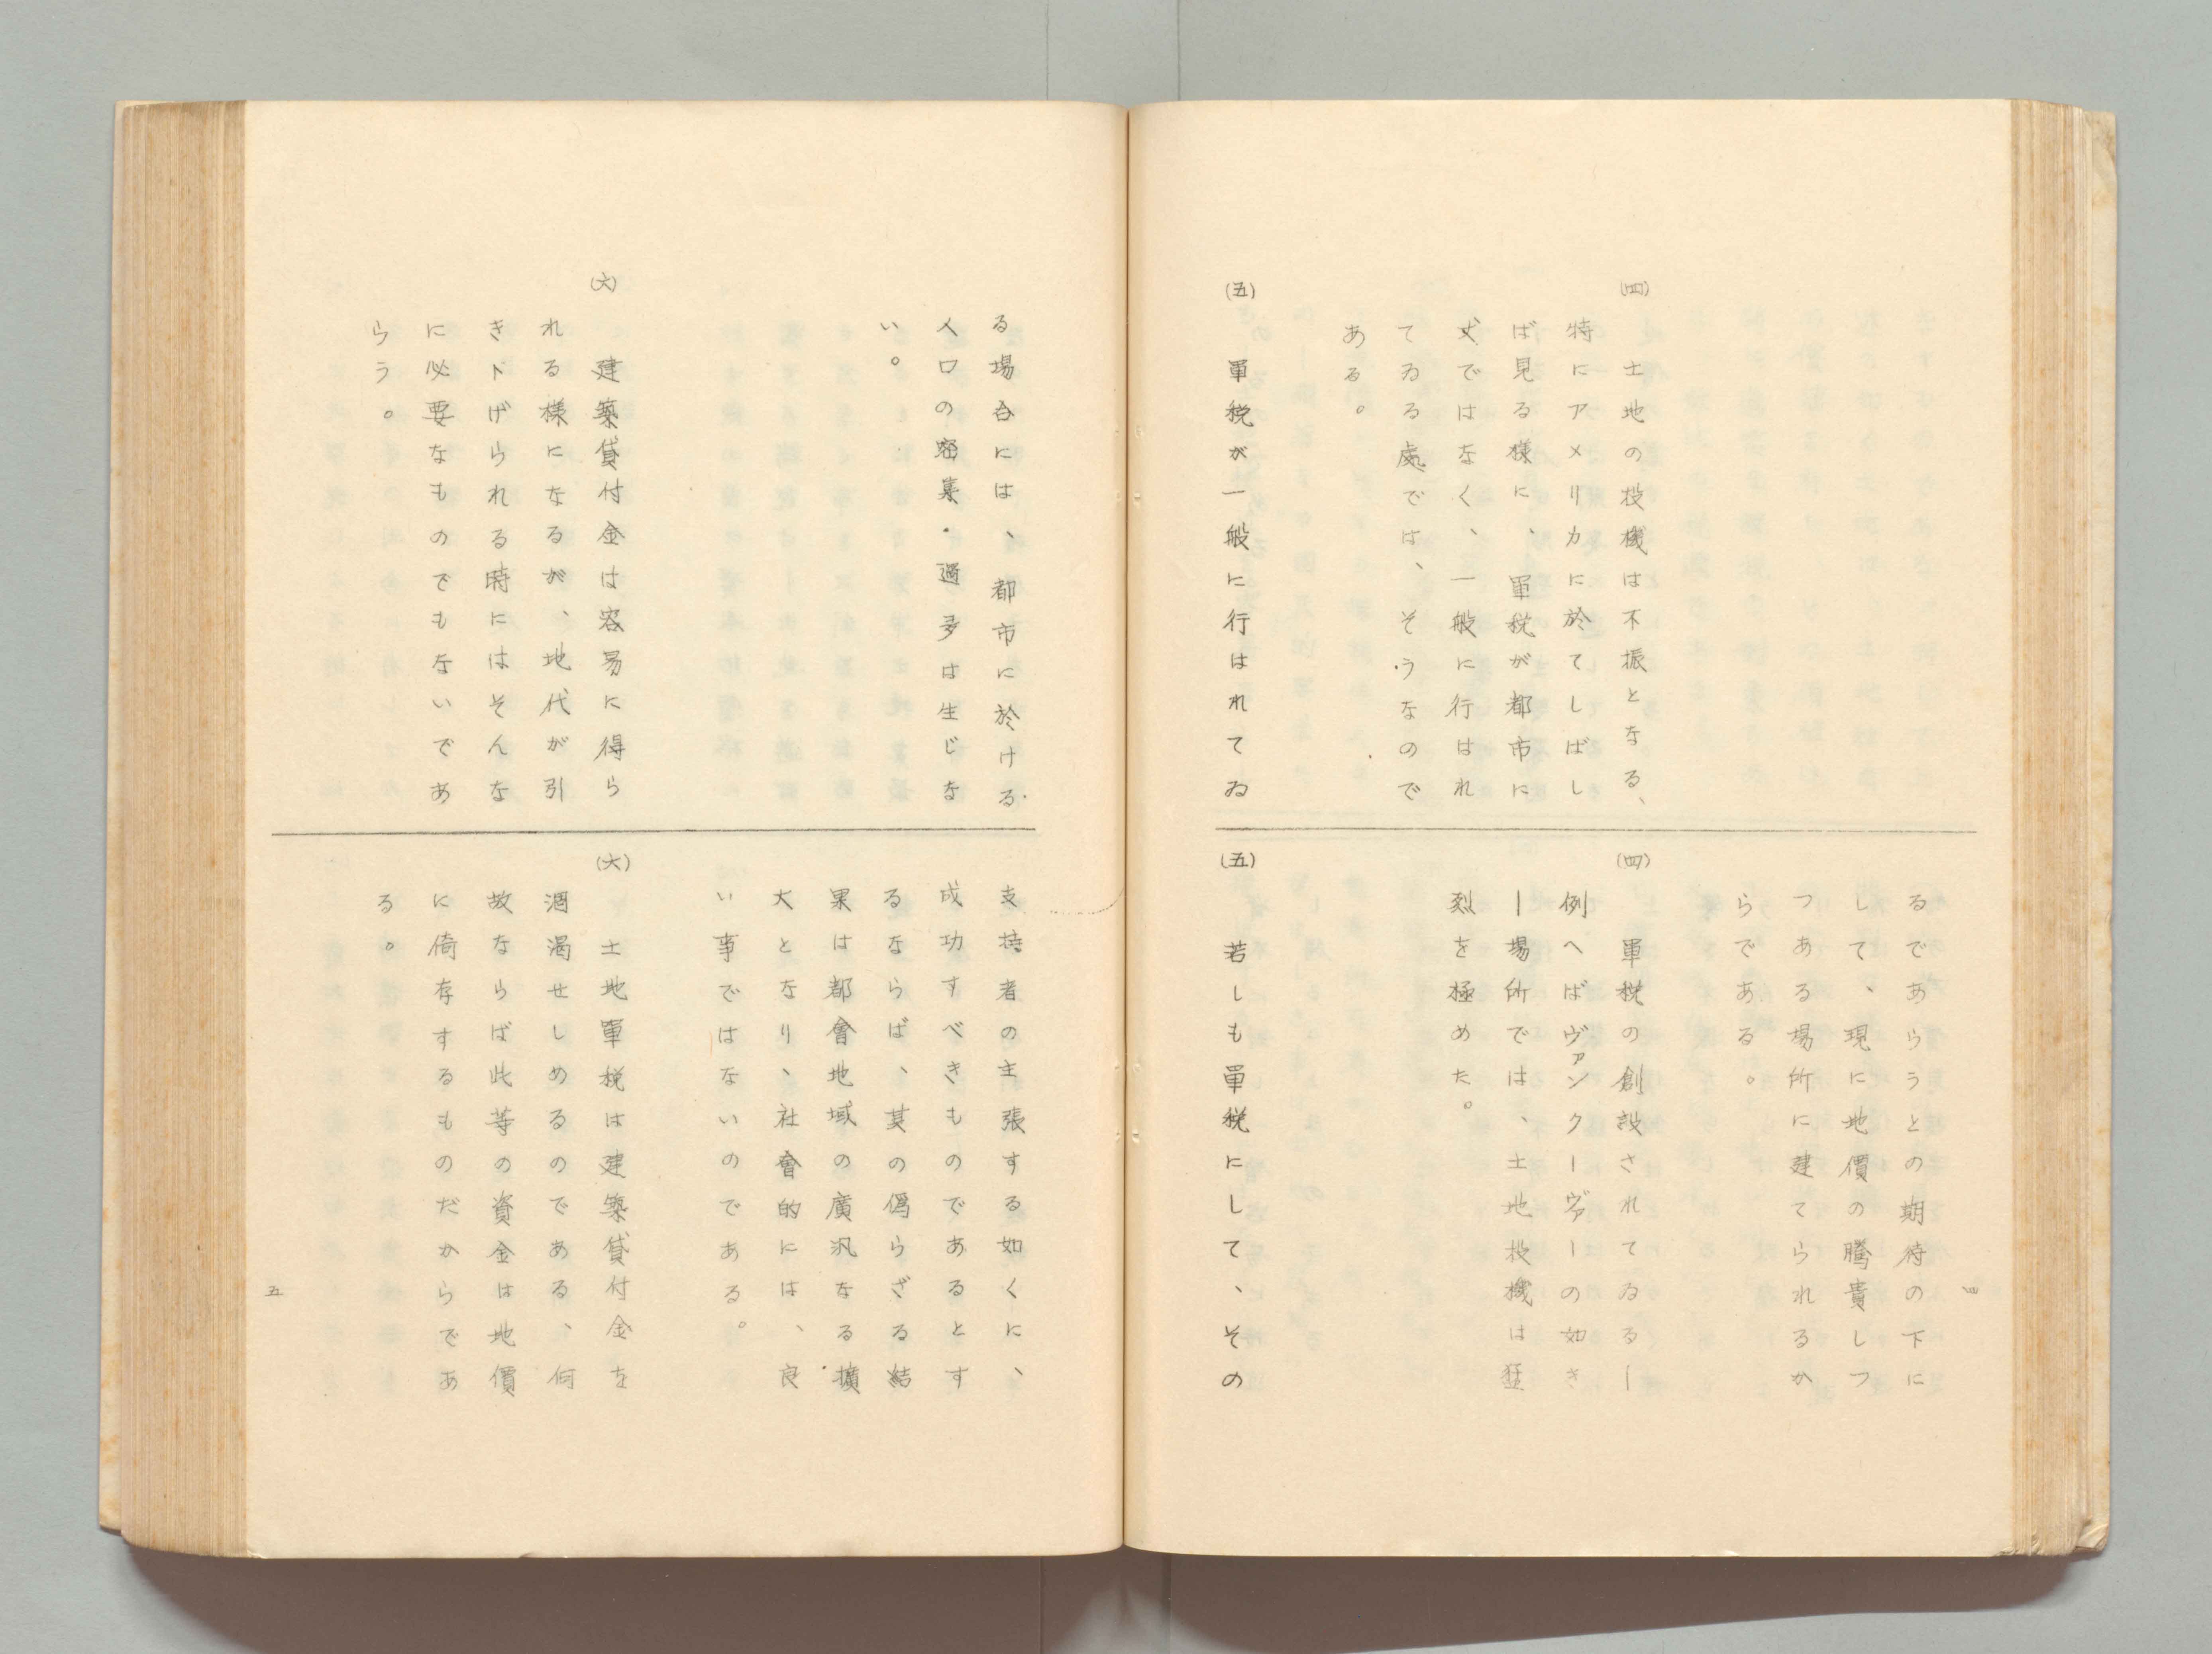 (四)　土地の投機は不振となる、
特にアメリカに於てしばし
ば見る様に、單税が都市に
丈ではなく、一般に行はれ
てゐる處では、そうなので
ある。
(五)　單税が一般に行はれてゐ
るであらうとの期待の下に
して、現に地價の騰貴しつ
つある場所に建てられるか
らである。
(四)　單税の創設されてゐるー
例へばヴァンクーヴァーの如き
ー場所では、土地投機は猛
烈を極めた。
(五)　若しも單税にして、その
四
る場合には、都市に於ける
人口の密集・過多は生じな
い。
(六)　建築貸付金は容易に得ら
れる様になるが、地代が引
き下げられる時にはそんな
に必要なものでもないであ
らう。
支持者の主張する如くに、
成功すべきものであるとす
るならば、其の僞らざる結
果は都會地域の廣汎なる擴
大となり、社會的には、良
い事ではないのである。
(六)　土地單税は建築貸付金を
涸渇せしめるのである、何
故ならば此等の資金は地價
に倚存するものだからであ
る。
五